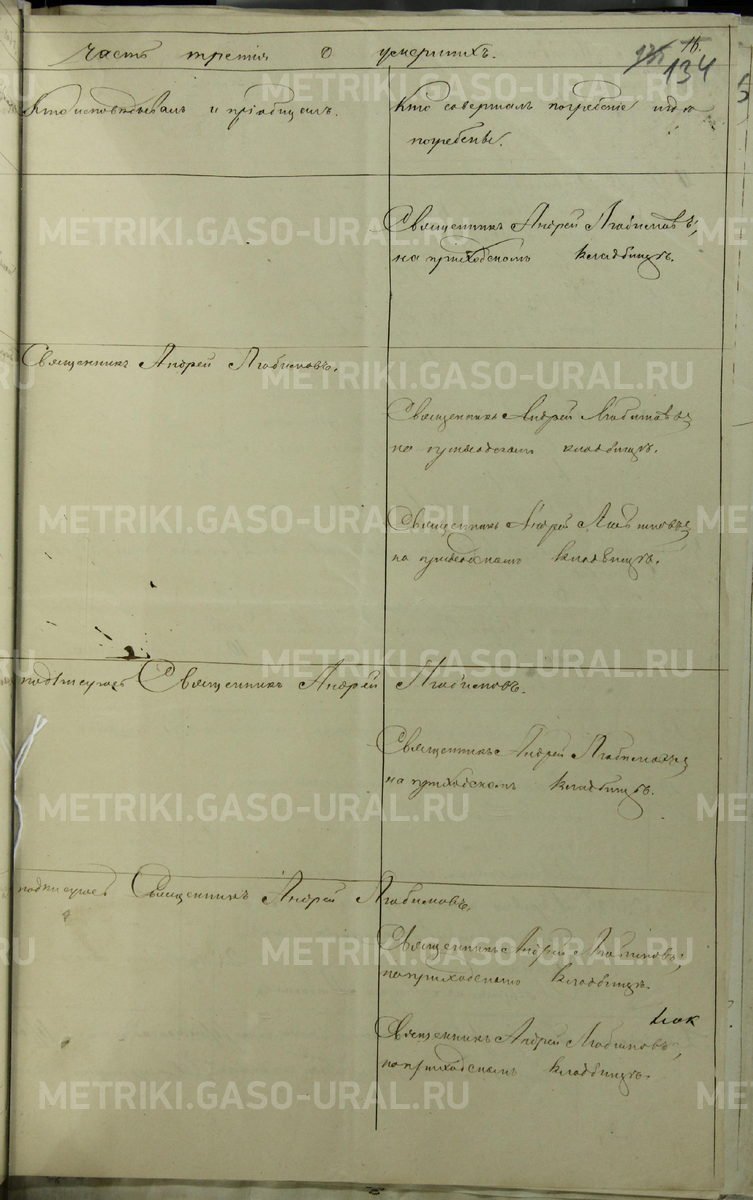 часть третiя о умершихъ.
15.
134
Кто исповѣдывалъ и прiобщалъ.
Кто совершалъ погребенiе и гдѣ
погребены.
Священникъ Андрей Любимовъ,
на приходскомъ кладбищѣ.
Священникъ Андрей Любимовъ.
Священникъ Андрей Любимовъ
на приходскомъ кладбищѣ.
Священникъ Андрей Любимовъ
на приходскомъ кладбищѣ.
подписуюсь Священникъ Андрей Любимовъ.
Священникъ Андрей Любимовъ
на приходскомъ кладбищѣ.
подписуюсь Священникъ Андрей Любимовъ.
Священникъ Андрей Любимовъ,
на приходскомъ кладбищѣ.
Священникъ Андрей Любимовъ,
на приходскомъ кладбищѣ.
METRIKI.GASO-URAL.RU